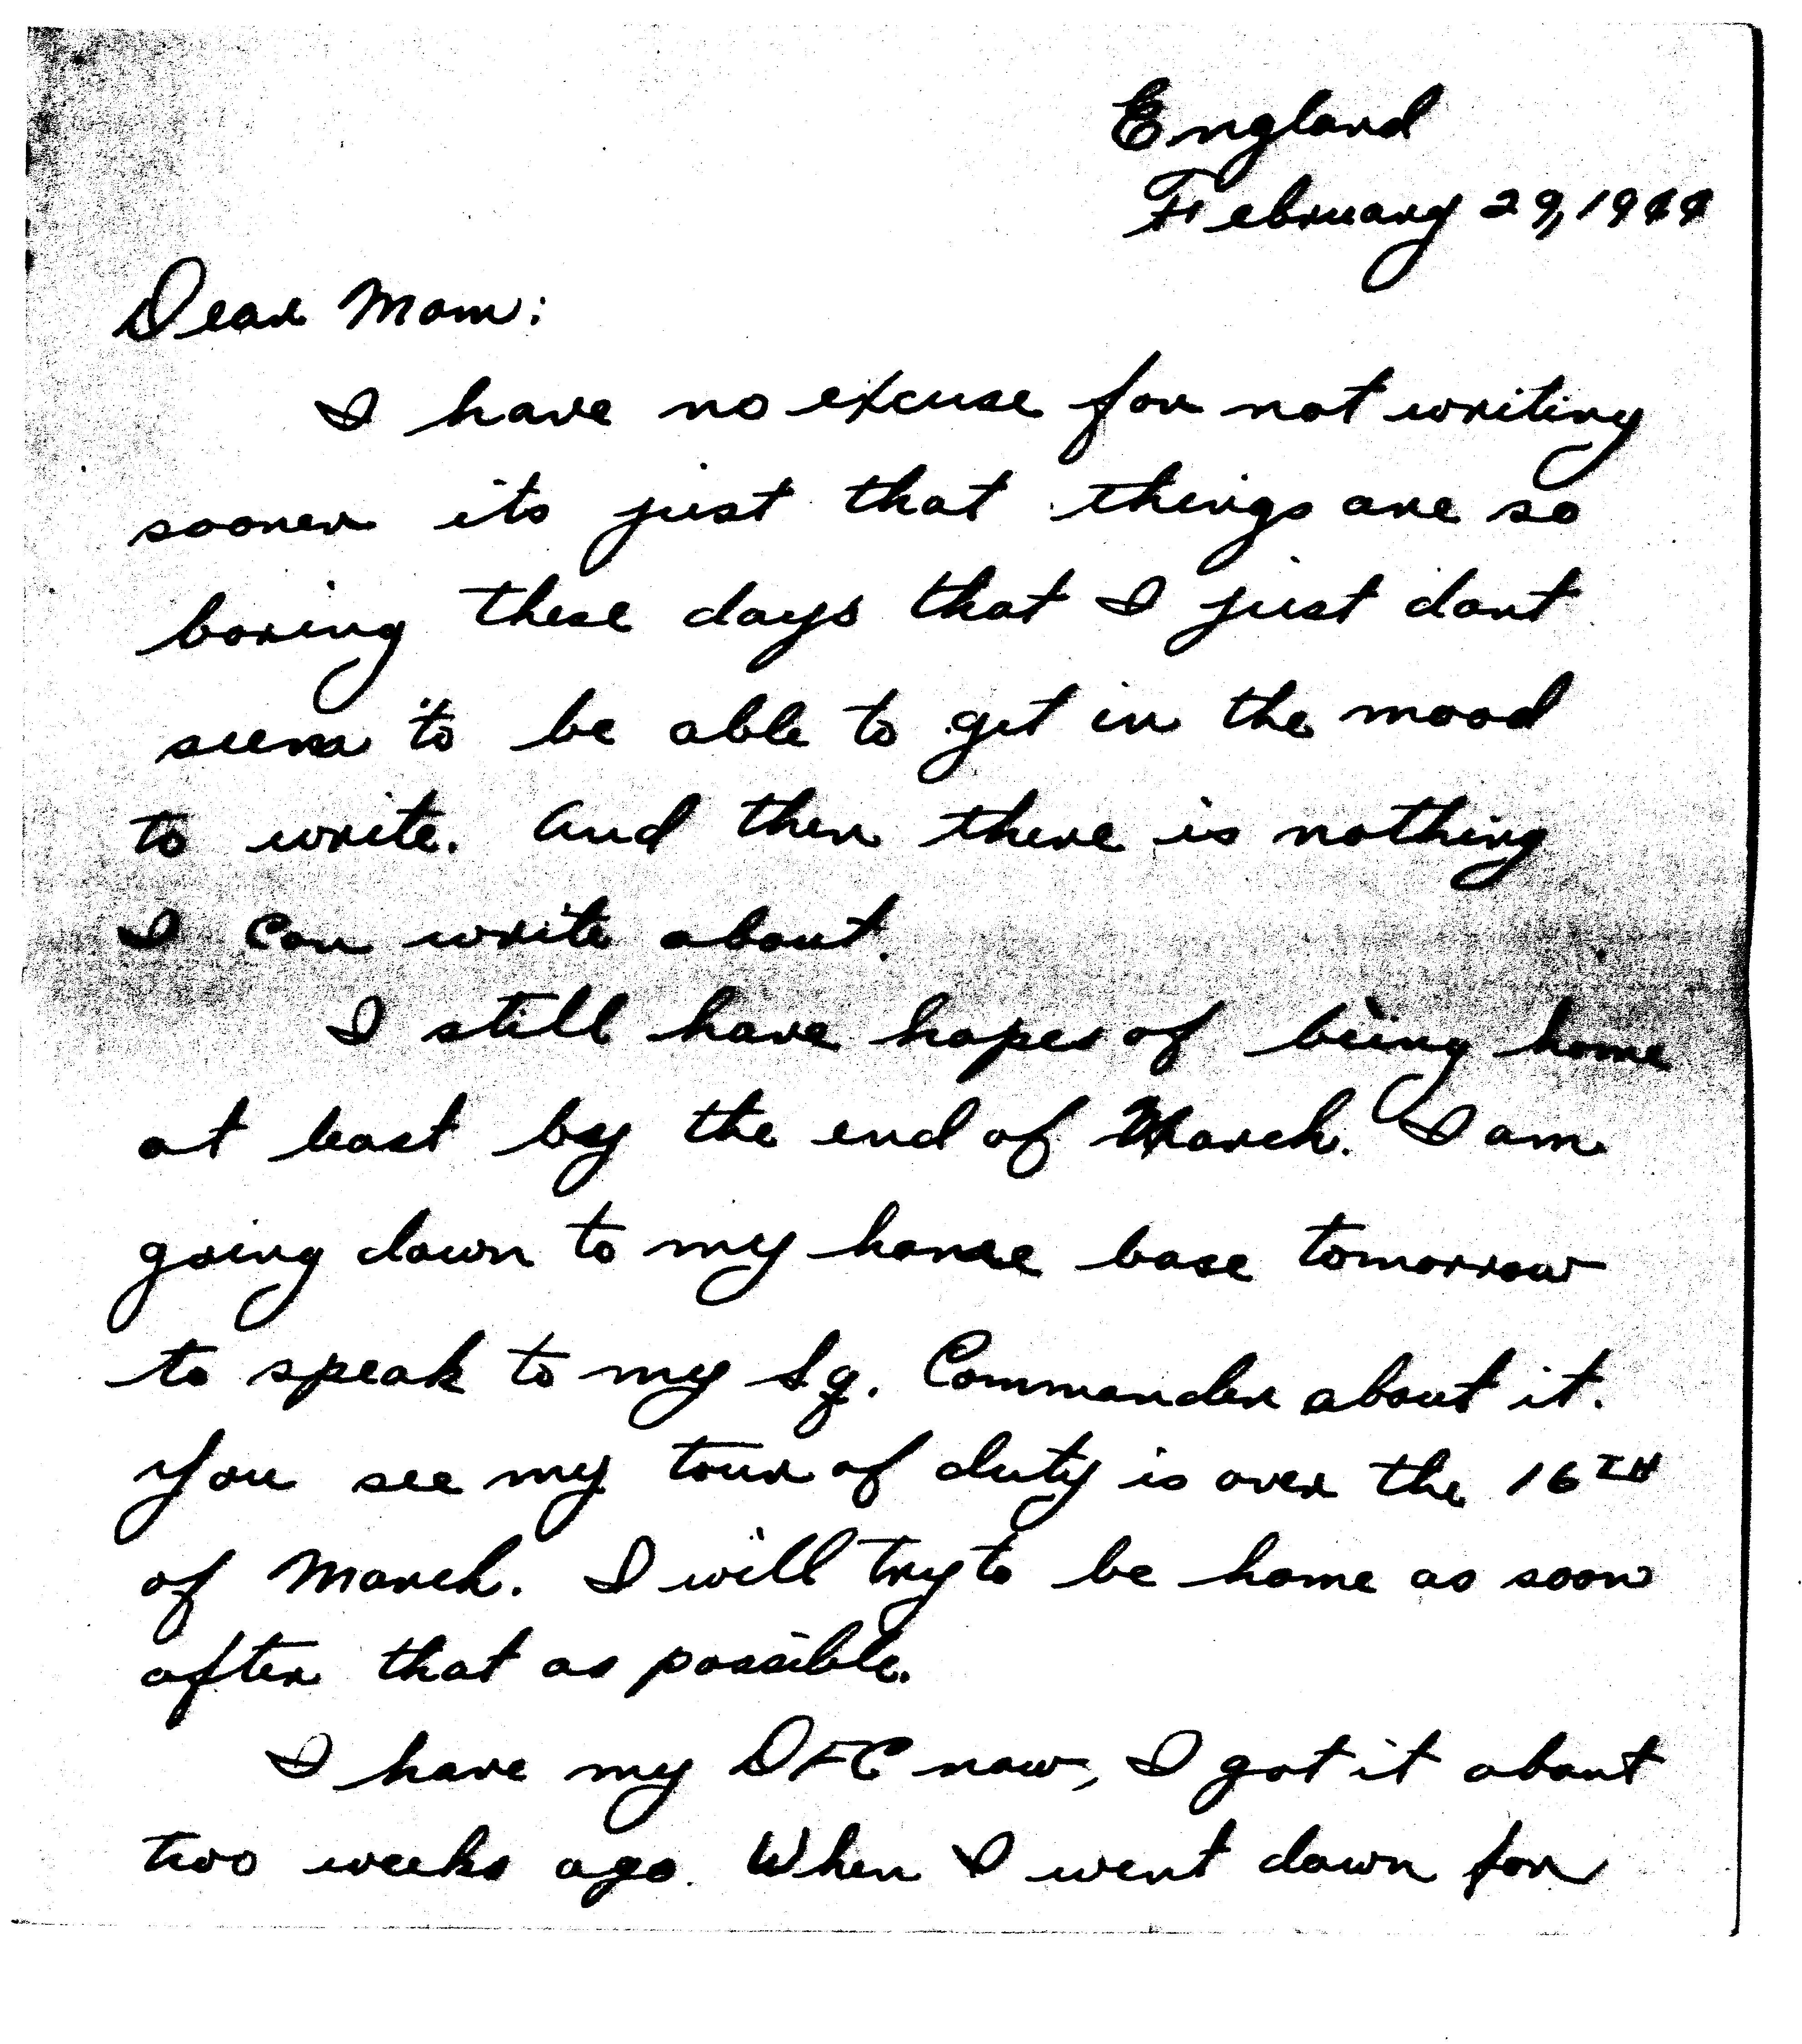 England
February 29, 1944
Dear Mom:
I have no excuse for not writing
sooner its just that things are so
boring these days that I just dont
seem to be able to get in the mood
to write. And then there is nothing
I can write about.
I still have hopes of being home
at least by the end of March. I am
going down to my home base tomorrow
to speak to my Sq. Commander about it.
You see my tour of duty is over the 16TH
of March. I will try to be home as soon
after that as possible.
I have my DFC now, I got it about
two weeks ago. When I went down for